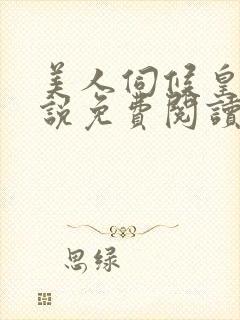 美人伺候皇
說免費閱讀
思绿